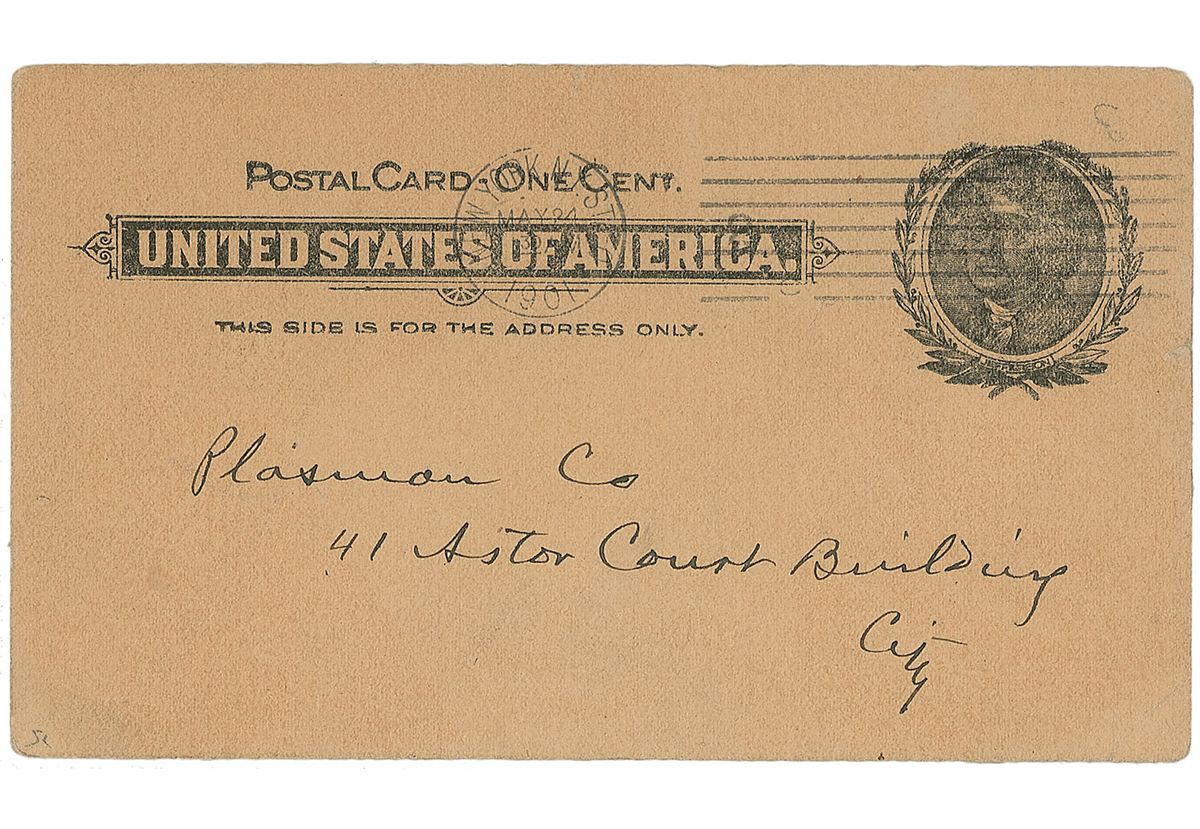 POSTAL CARD-ONE CENT.
UNITED STATES OF AMERICA.
THIS SIDE IS FOR THE ADDRESS ONLY.
NEW YORK, N.Y. STA.
MAY 24
1901
JEFFERSON
Plasmon Co
41 Astor Court Building
City